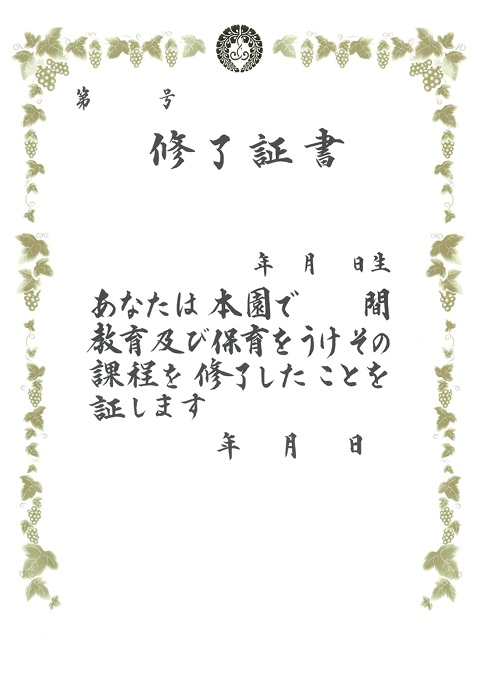 第 号
修了証書
年 月 日生
あなたは 本園で 間
教育及び保育をうけその
課程を 修了した ことを
証します
年 月 日